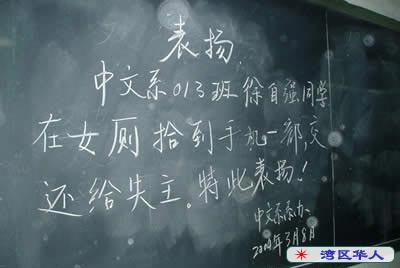 表扬
中文系013班徐自强同学
在女厕拾到手机一部,交
还给失主。特此表扬!
中文系系办
2004年3月8日
湾区华人